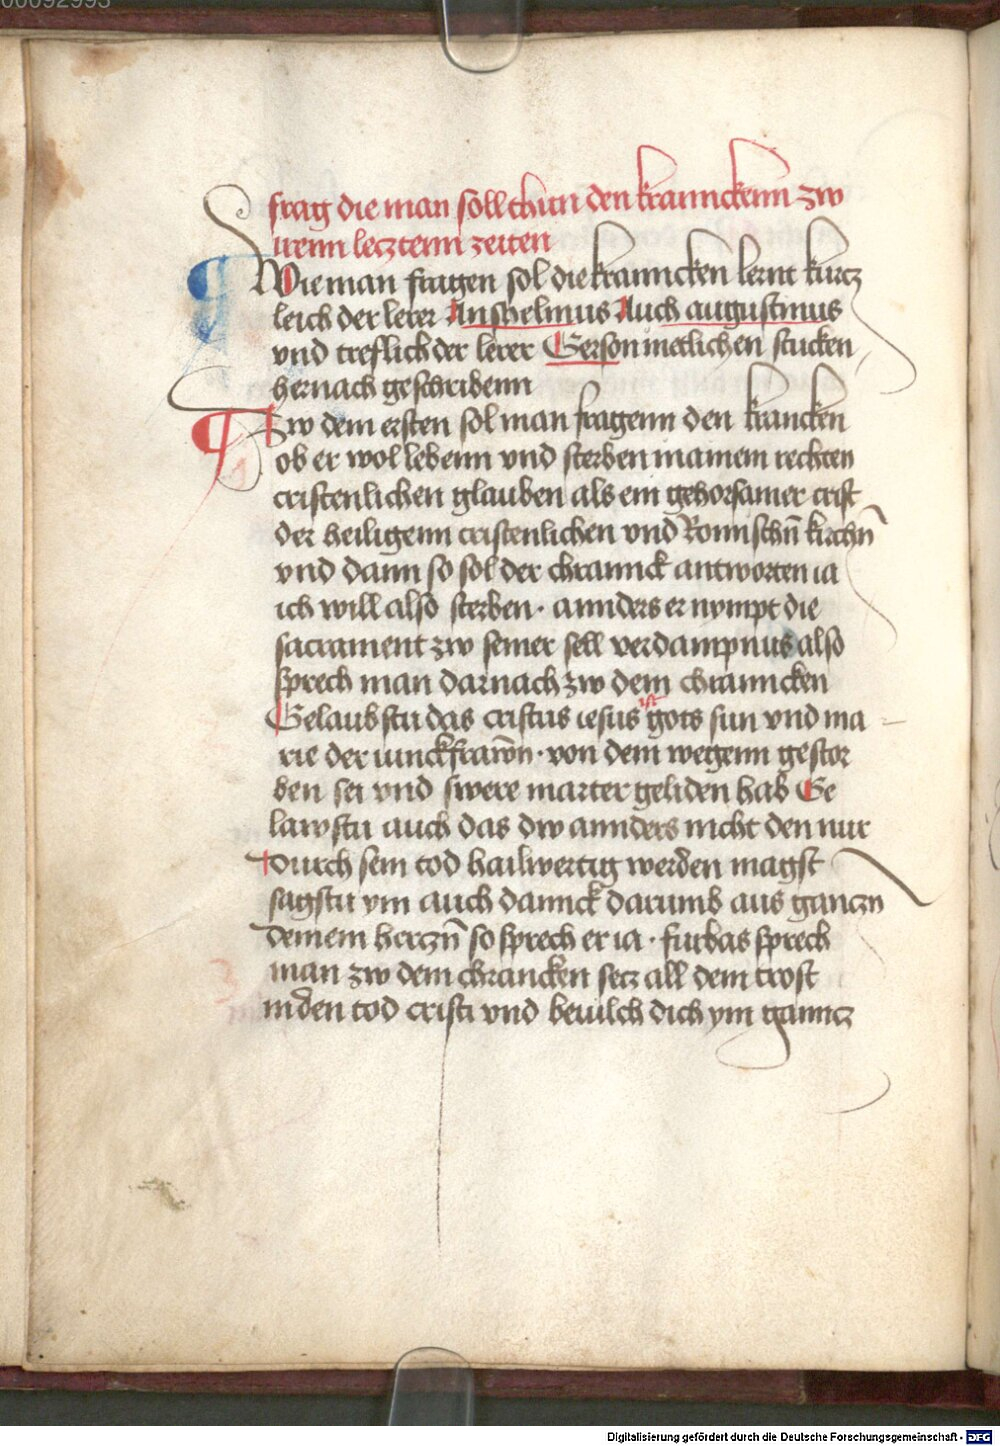 frag die man soll thun den kranncken zw
irenn lecztenn zeiten
Wie man fragen sol die kranncken lernt kurcz
leich der lerer Anshelmus Auch augustinus
vnd treflich der lerer Gerson in etlichen stucken
hernach geschribenn
Zw dem ersten sol man fragenn den krancken
ob er wol lebenn vnd sterben in ainem rechten
cristenlichen glauben als ein gehorsamer crist
der heiligenn cristenlichen vnd Romischn̄ kirchn̄
vnd dann so sol der chranck antworten ia
ich will also sterben · annders er nympt die
sacrament zw seiner sell verdampnus also
sprech man darnach zw dem chrancken
Gelaubstu das cristus iesus ist gots sun vnd ma
rie der iunckfrawn · von dem wegenn gestor
ben sei vnd swere marter geliden hab Ge
lawstu auch das dw annders nicht den nur
durch sein tod hailwertig werden magst
sagstu ym auch danck darumb aus ganczn
deinem herczn̄ so sprech er ia · furbas sprech
man zw dem chrancken secz all dein trost
in den tod cristi vnd beuilch dich ym ganncz
Digitalisierung gefördert durch die Deutsche Forschungsgemeinschaft - DFG